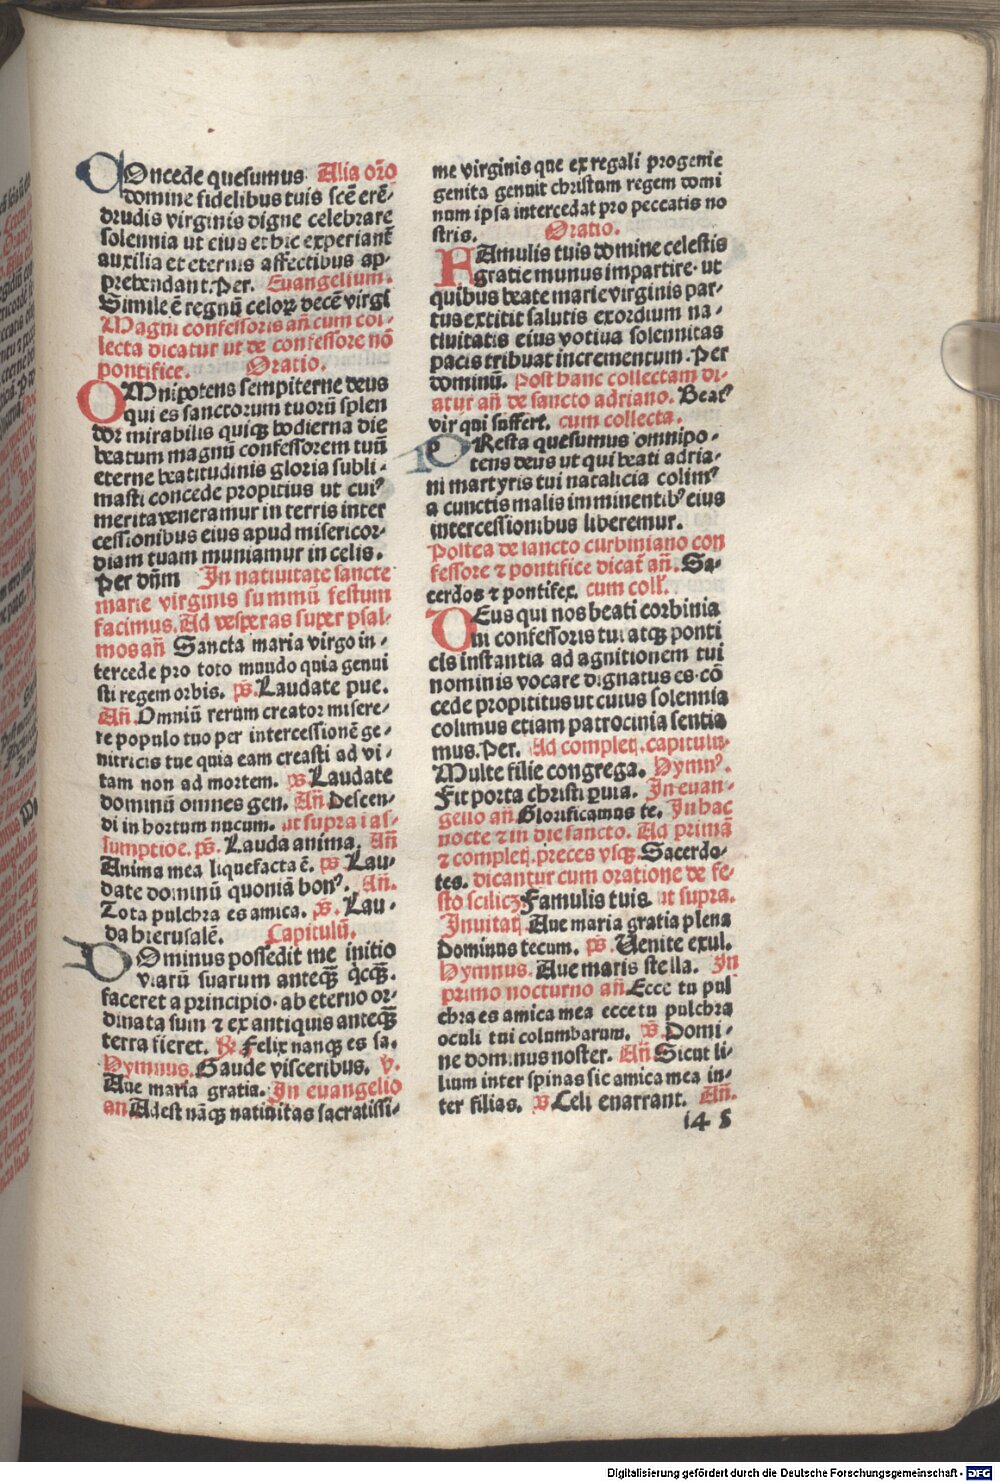 COncede quesumus Alia oro
domine fidelibus tuis scē eren-
drudis virginis digne celebrare
solennia ut eius et hic experiant
auxilia et eternis affectibus ap-
prehendant. Per. Euangelium.
Simile ē regnū celorꝝ decē virgi
Magni confessoris an̄ cum col-
lecta dicatur ut de confessore nō
pontifice. Oratio.
OMnipotens sempiterne deus
qui es sanctorum tuorū splen
dor mirabilis quiqꝫ hodierna die
beatum magnū confessorem tuū
eterne beatitudinis gloria subli-
masti concede propitius ut cuiꝰ
merita veneramur in terris inter
cessionibus eius apud misericor-
diam tuam muniamur in celis.
Per dn̄m In natiuitate sancte
marie virginis summū festum
facimus. Ad vesperas super psal-
mos an̄ Sancta maria virgo in-
tercede pro toto mundo quia genui
sti regem orbis. p̄s. Laudate pue.
An̄. Omniū rerum creator misere-
re populo tuo per intercessionē ge-
nitricis tue quia eam creasti ad vi-
tam non ad mortem. ps Laudate
dominū omnes gen. An̄ Descen-
di in hortum nucum. ut supra i as-
sumptiōe. ps. Lauda anima. An̄
Anima mea liquefacta ē. ps Lau-
date dominū quoniā bonꝰ. An̄.
Tota pulchra es amica. ps. Lau-
da hierusalē. Capitulū.
DOminus possedit me initio
viarū suarum anteqꝫ qcqꝫ
faceret a principio. ab eterno or-
dinata sum ⁊ ex antiquis anteqꝫ
terra fieret. ꝶ Felix nanqꝫ es sa.
Hymnus. Gaude visceribus. v.
Aue maria gratia. In euangelio
an Adest nāqꝫ natiuitas sacratissi-
me virginis que ex regali progenie
genita genuit christum regem domi
num ipsa intercedat pro peccatis no
stris. Oratio.
FAmulis tuis domine celestis
gratie munus impartire. ut
quibus beate marie virginis par-
tus extitit salutis exordium na-
tiuitatis eius votiua solennitas
pacis tribuat incrementum. Per
dominū. Post hanc collectam di-
atur an̄ de sancto adriano. Beatꝰ
vir qui suffert. cum collecta.
PResta quesumus omnipo-
tens deus ut qui beati adria-
ni martyris tui natalicia colimꝰ
a cunctis malis imminentibꝰ eius
intercessionibus liberemur.
Postea de sancto curbiniano con
fessore ⁊ pontifice dicat an̄. Sa-
cerdos ⁊ pontifex. cum coll.
DEus qui nos beati corbinia
ni confessoris tui atqꝫ ponti
cis instantia ad agnitionem tui
nominis vocare dignatus es. cō
cede propititus ut cuius solennia
colimus etiam patrocinia sentia
mus. Per. Ad completꝫ. capitulū
Multe filie congrega. Hymnꝰ.
Fit porta christi ꝑuia. In euan-
gelio an̄ Glorificamus te. In hac
nocte ⁊ in die sancto. Ad primā
⁊ completꝫ. preces vsqꝫ Sacerdo-
tes. dicantur cum oratione de fe-
sto scilicꝫ Famulis tuis ut supra.
Inuitatꝫ Aue maria gratia plena
Dominus tecum. ps. Uenite exul.
Hymnus. Aue maris stella. In
primo nocturno an̄ Ecce tu pul
chra es amica mea ecce tu pulchra
oculi tui columbarum. ps. Domi-
ne dominus noster. An̄ Sicut li-
lium inter spinas sic amica mea in-
ter filias. ps Celi enarrant. An̄.
14 5
Digitalisierung gefördert durch die Deutsche Forschungsgemeinschaft - DFG